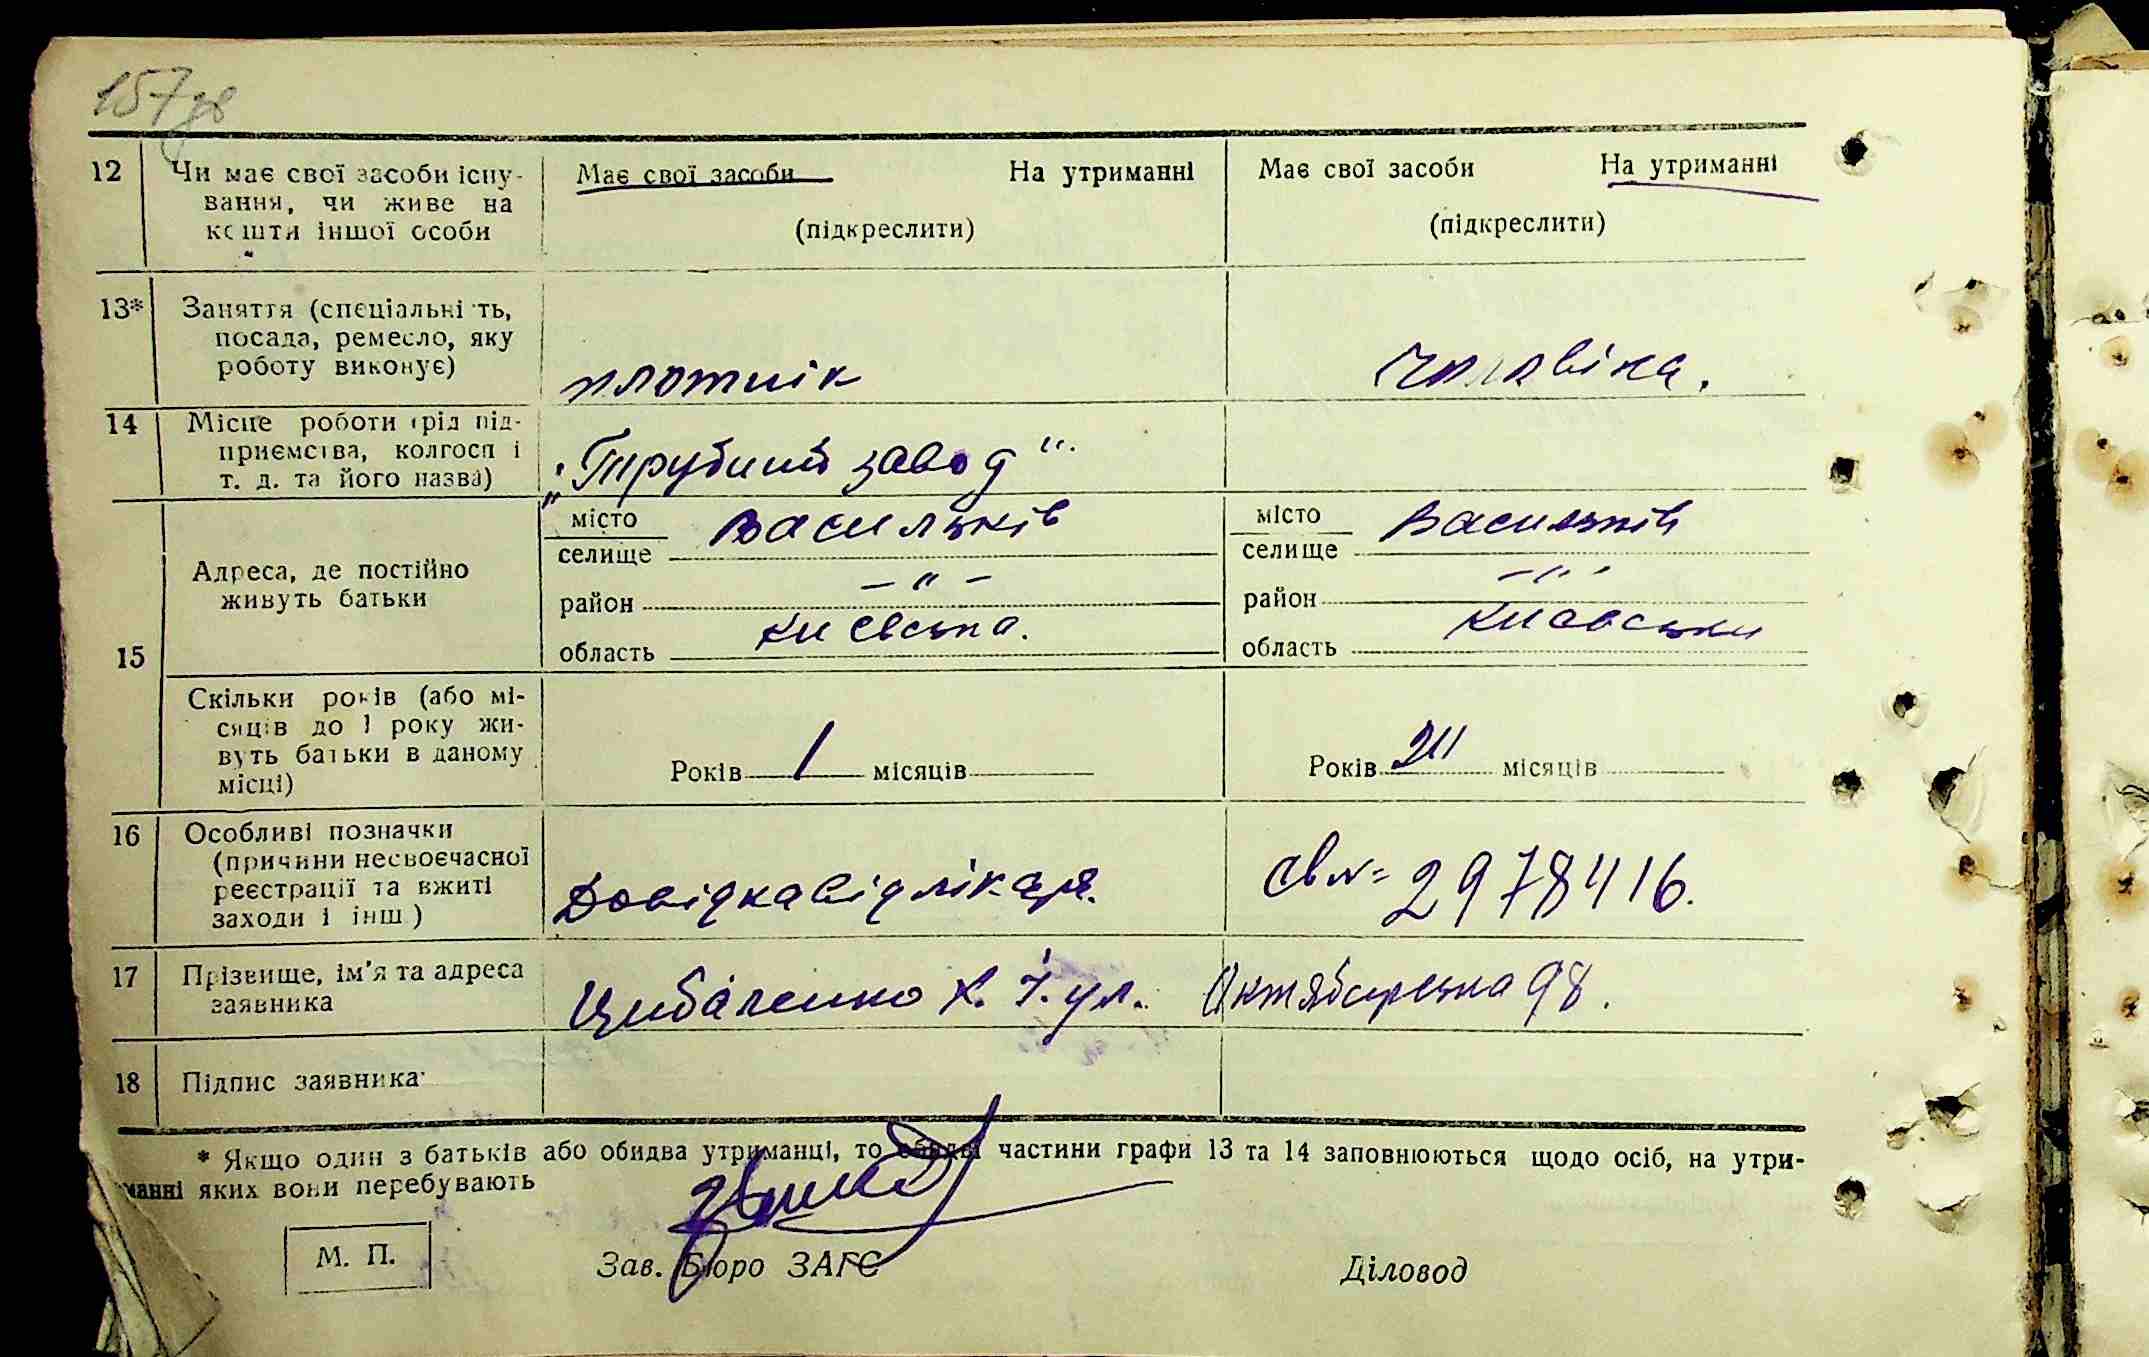 157зв
12 Чи має свої засоби існу- Має свої засоби На утриманні Має свої засоби На утриманні
вання, чи живе на
кошти іншої особи (підкреслити) (підкреслити)
13* Заняття (спеціальність,
посада, ремесло, яку
роботу виконує) плотнік Чоловіка.
14 Місце роботи (рід під-
приємства, колгосп і „Трубний завод".
т. д. та його назва)
15 Адреса, де постійно живуть батьки
місто Васильків місто Васильків
селище селище
район —„— район —„—
область Києвська. область Києвська
Скільки років (або мі-
сяців до 1 року жи-
вуть батьки в даному Років 1 місяців Років місяців
місці)
16 Особливі позначки
(причини несвоєчасної
реєстрації та вжиті Довідка від лікаря. св №= 2978416.
заходи і інш)
17 Прізвище, ім'я та адреса
заявника К. І. ул. Октябирська 98.
18 Підпис заявника
* Якщо один з батьків або обидва утриманці, то обидві частини графи 13 та 14 заповнюються щодо осіб, на утри-
манні яких вони перебувають
М. П. Зав. Бюро ЗАГС Діловод